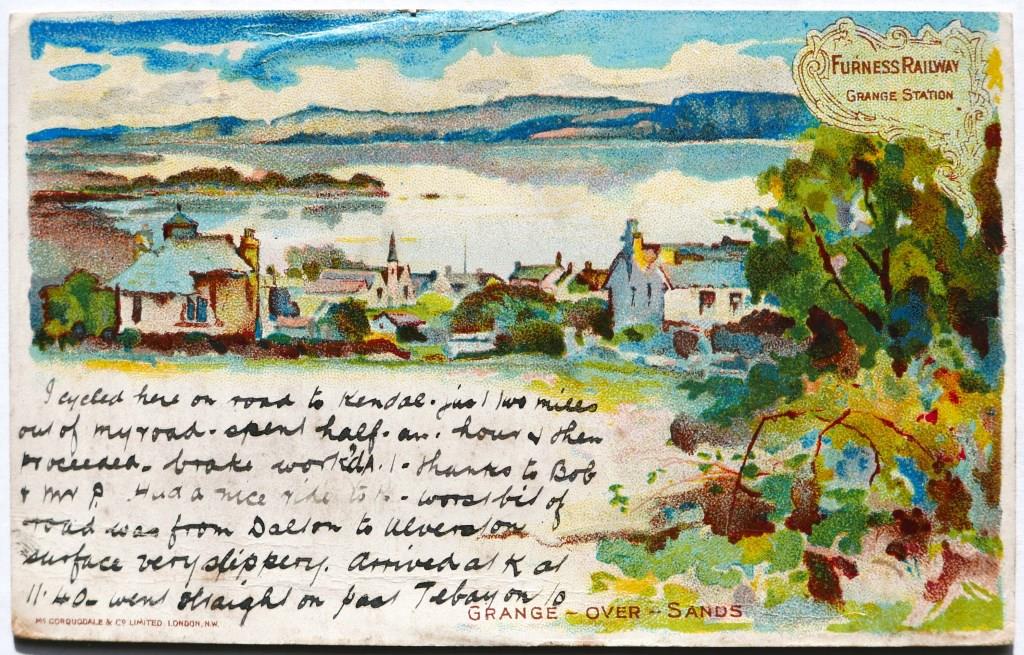 FURNESS RAILWAY
GRANGE STATION
I cycled here on road to Kendal - just two miles
out of my road - spent half - an - hour & then
proceeded - brake work'd A.1 - thanks to Bob
& Mr P. Had a nice ride to K - worst bit of
road was from Dalton to Ulverston
surface very slippery. Arrived at K at
11.40 - went straight on past Tebay on to
GRANGE - OVER - SANDS
Mc CORQUODALE & Co LIMITED. LONDON, N.W.